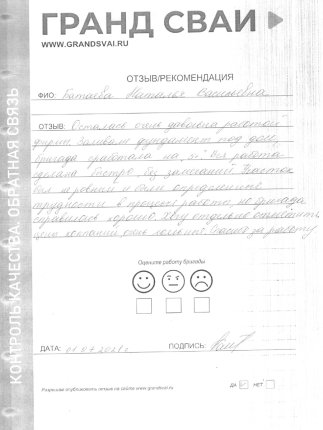 ГРАНД СВАИ
WWW.GRANDSVAI.RU
КОНТРОЛЬ КАЧЕСТВА. ОБРАТНАЯ СВЯЗЬ
ОТЗЫВ/РЕКОМЕНДАЦИЯ
ФИО: Наталья Васильевна
ОТЗЫВ: Осталась очень довольна работой
фирмы. Заливали фундамент под дом,
бригада сработала на "5". Вся работа
сделана быстро, без замечаний. Участок
был неровный и были определенные
трудности в процессе работы, но бригада
справилась хорошо. Хочу отдельно
компании, очень Спасибо за работу
Оцените работу бригады
ДАТА: 01.07.2021 г.
ПОДПИСЬ:
Разрешаю опубликовать отзыв на сайте www.grandsvai.ru
ДА НЕТ